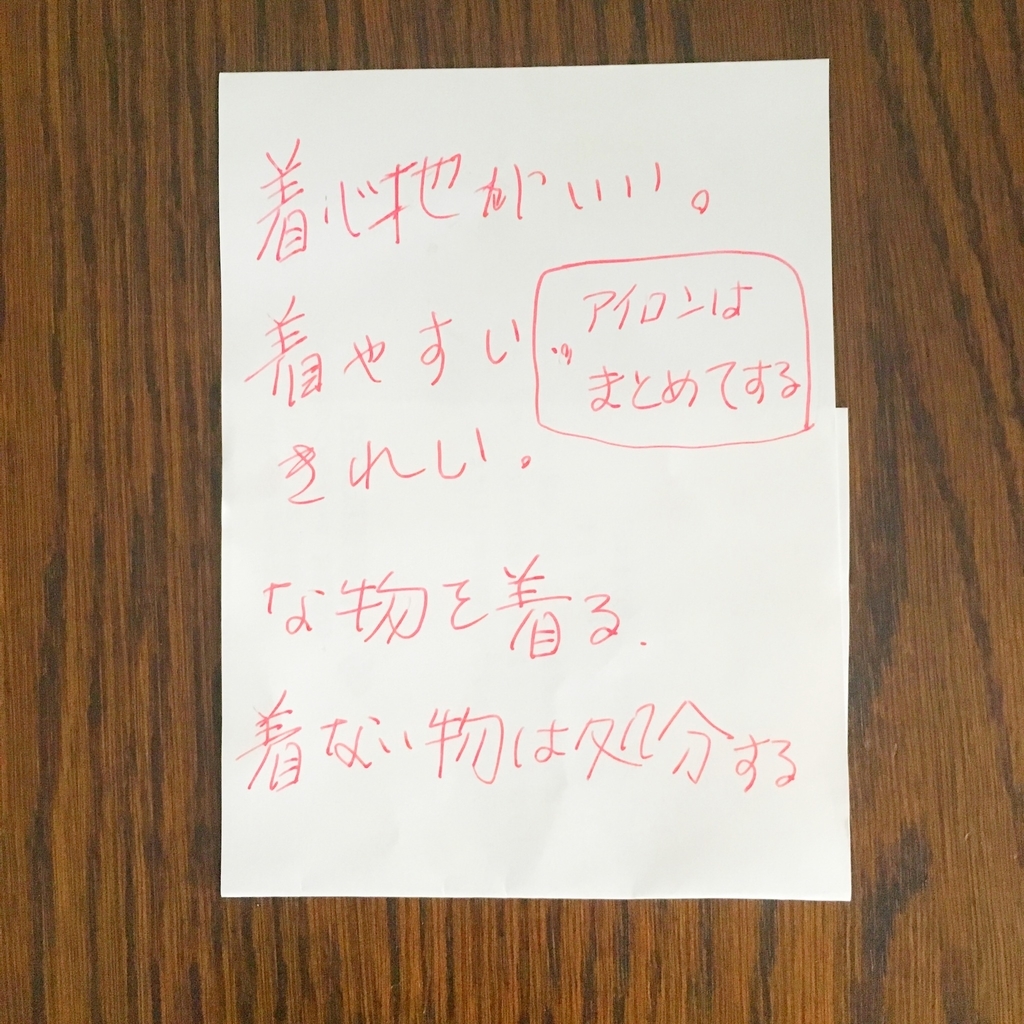 着心地がいい。
着やすい。
アイロンは
まとめてする
きれい。
な物を着る.
着ない物は処分する